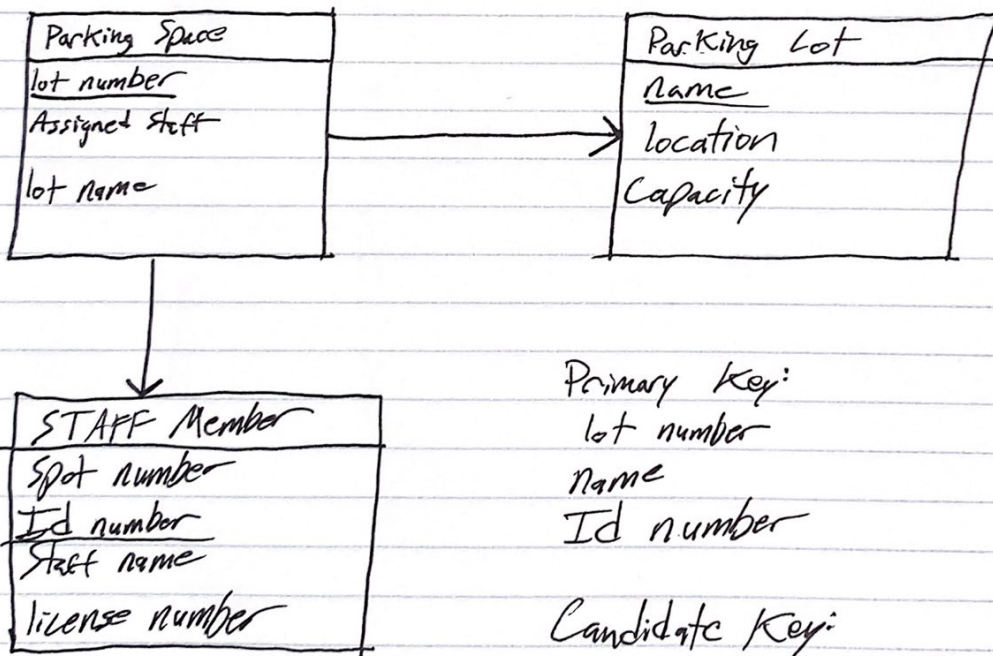 Parking Space
lot number
Assigned Staff
lot name
Parking Lot
name
location
Capacity
STAFF Member
Spot number
Id number
Staff name
license number
Primary Key:
lot number
name
Id number
Candidate Key: